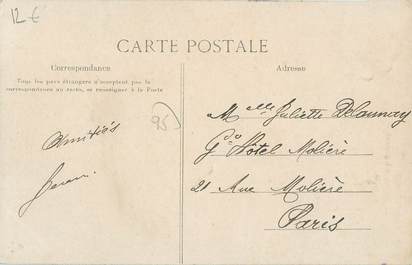 12 €
CARTE POSTALE
Correspondance
Tous les pays étrangers n'acceptent pas la
correspondance au recto, se renseigner à la Poste
Amitiés
95
Adresse
Melle Juliette Delaunay
Gd Hôtel Molière
21 Rue Molière
Paris